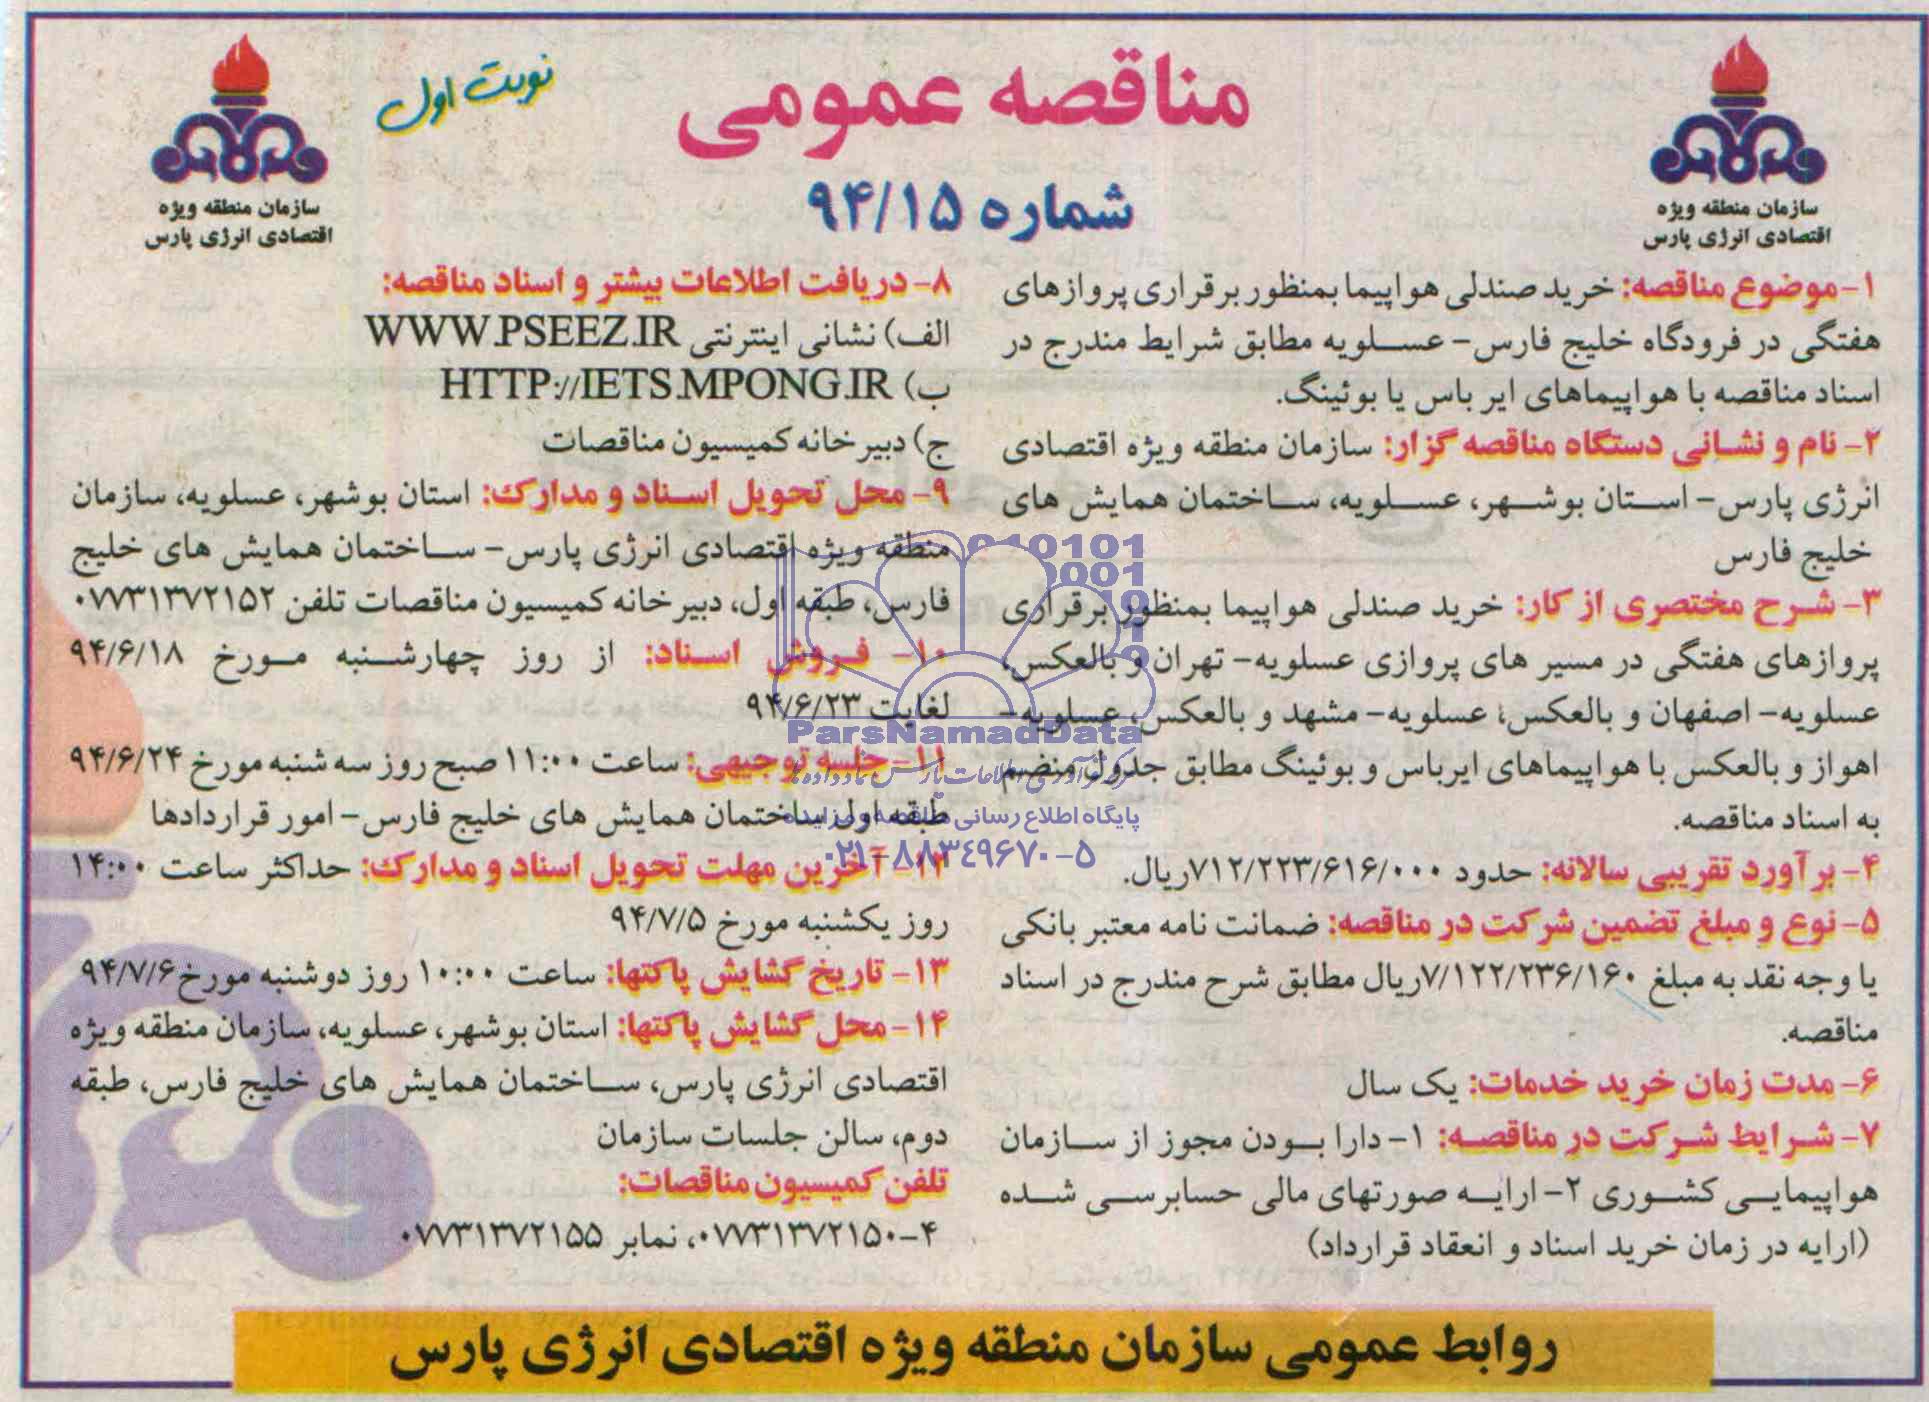 مناقصه عمومی
نوبت اول
شماره ۹۴/۱۵
سازمان منطقه ویژه
اقتصادی انرژی پارس
سازمان منطقه ویژه
اقتصادی انرژی پارس
۱- موضوع مناقصه: خرید صندلی هواپیما بمنظور برقراری پروازهای
هفتگی در فرودگاه خلیج فارس- عسلویه مطابق شرایط مندرج در
اسناد مناقصه با هواپیماهای ایر باس یا بوئینگ.
۲- نام و نشانی دستگاه مناقصه گزار: سازمان منطقه ویژه اقتصادی
انرژی پارس- استان بوشهر، عسلویه، ساختمان همایش های
خلیج فارس
۳- شرح مختصری از کار: خرید صندلی هواپیما بمنظور برقراری
پروازهای هفتگی در مسیر های پروازی عسلویه- تهران و بالعکس،
عسلویه- اصفهان و بالعکس، عسلویه- مشهد و بالعکس، عسلویه-
اهواز و بالعکس با هواپیماهای ایرباس و بوئینگ مطابق جدول منضم
به اسناد مناقصه.
۴- برآورد تقریبی سالانه: حدود ۷۱۲/۲۲۳/۶۱۶/۰۰۰ریال.
۵- نوع و مبلغ تضمین شرکت در مناقصه: ضمانت نامه معتبر بانکی
یا وجه نقد به مبلغ ۷/۱۲۲/۲۳۶/۱۶۰ریال مطابق شرح مندرج در اسناد
مناقصه.
۶- مدت زمان خرید خدمات: یک سال
۷- شرایط شرکت در مناقصه: ۱- دارا بودن مجوز از سازمان
هواپیمایی کشوری ۲- ارایه صورتهای مالی حسابرسی شده
(ارایه در زمان خرید اسناد و انعقاد قرارداد)
۸- دریافت اطلاعات بیشتر و اسناد مناقصه:
الف) نشانی اینترنتی WWW.PSEEZ.IR
ب) HTTP://IETS.MPONG.IR
ج) دبیر خانه کمیسیون مناقصات
۹- محل تحویل اسناد و مدارک: استان بوشهر، عسلویه، سازمان
منطقه ویژه اقتصادی انرژی پارس- ساختمان همایش های خلیج
فارس، طبقه اول، دبیر خانه کمیسیون مناقصات تلفن ۰۷۷۳۱۳۷۲۱۵۲
۱۰- فروش اسناد: از روز چهارشنبه مورخ ۹۴/۶/۱۸
لغایت ۹۴/۶/۲۳
۱۱- جلسه توجیهی: ساعت ۱۱:۰۰ صبح روز سه شنبه مورخ ۹۴/۶/۲۴
طبقه اول ساختمان همایش های خلیج فارس- امور قراردادها
۱۲- آخرین مهلت تحویل اسناد و مدارک: حداکثر ساعت ۱۴:۰۰
روز یکشنبه مورخ ۹۴/۷/۵
۱۳- تاریخ گشایش پاکتها: ساعت ۱۰:۰۰ روز دوشنبه مورخ ۹۴/۷/۶
۱۴- محل گشایش پاکتها: استان بوشهر، عسلویه، سازمان منطقه ویژه
اقتصادی انرژی پارس، ساختمان همایش های خلیج فارس، طبقه
دوم، سالن جلسات سازمان
تلفن کمیسیون مناقصات:
۰۷۷۳۱۳۷۲۱۵۰-۴، نمابر ۰۷۷۳۱۳۷۲۱۵۵
روابط عمومی سازمان منطقه ویژه اقتصادی انرژی پارس
ParsNamadData
مرکز فرآوری اطلاعات پارس نماد داده ها
پایگاه اطلاع رسانی مناقصه و مزایده
۰۲۱-۸۸۳۴۹۶۷۰-۵